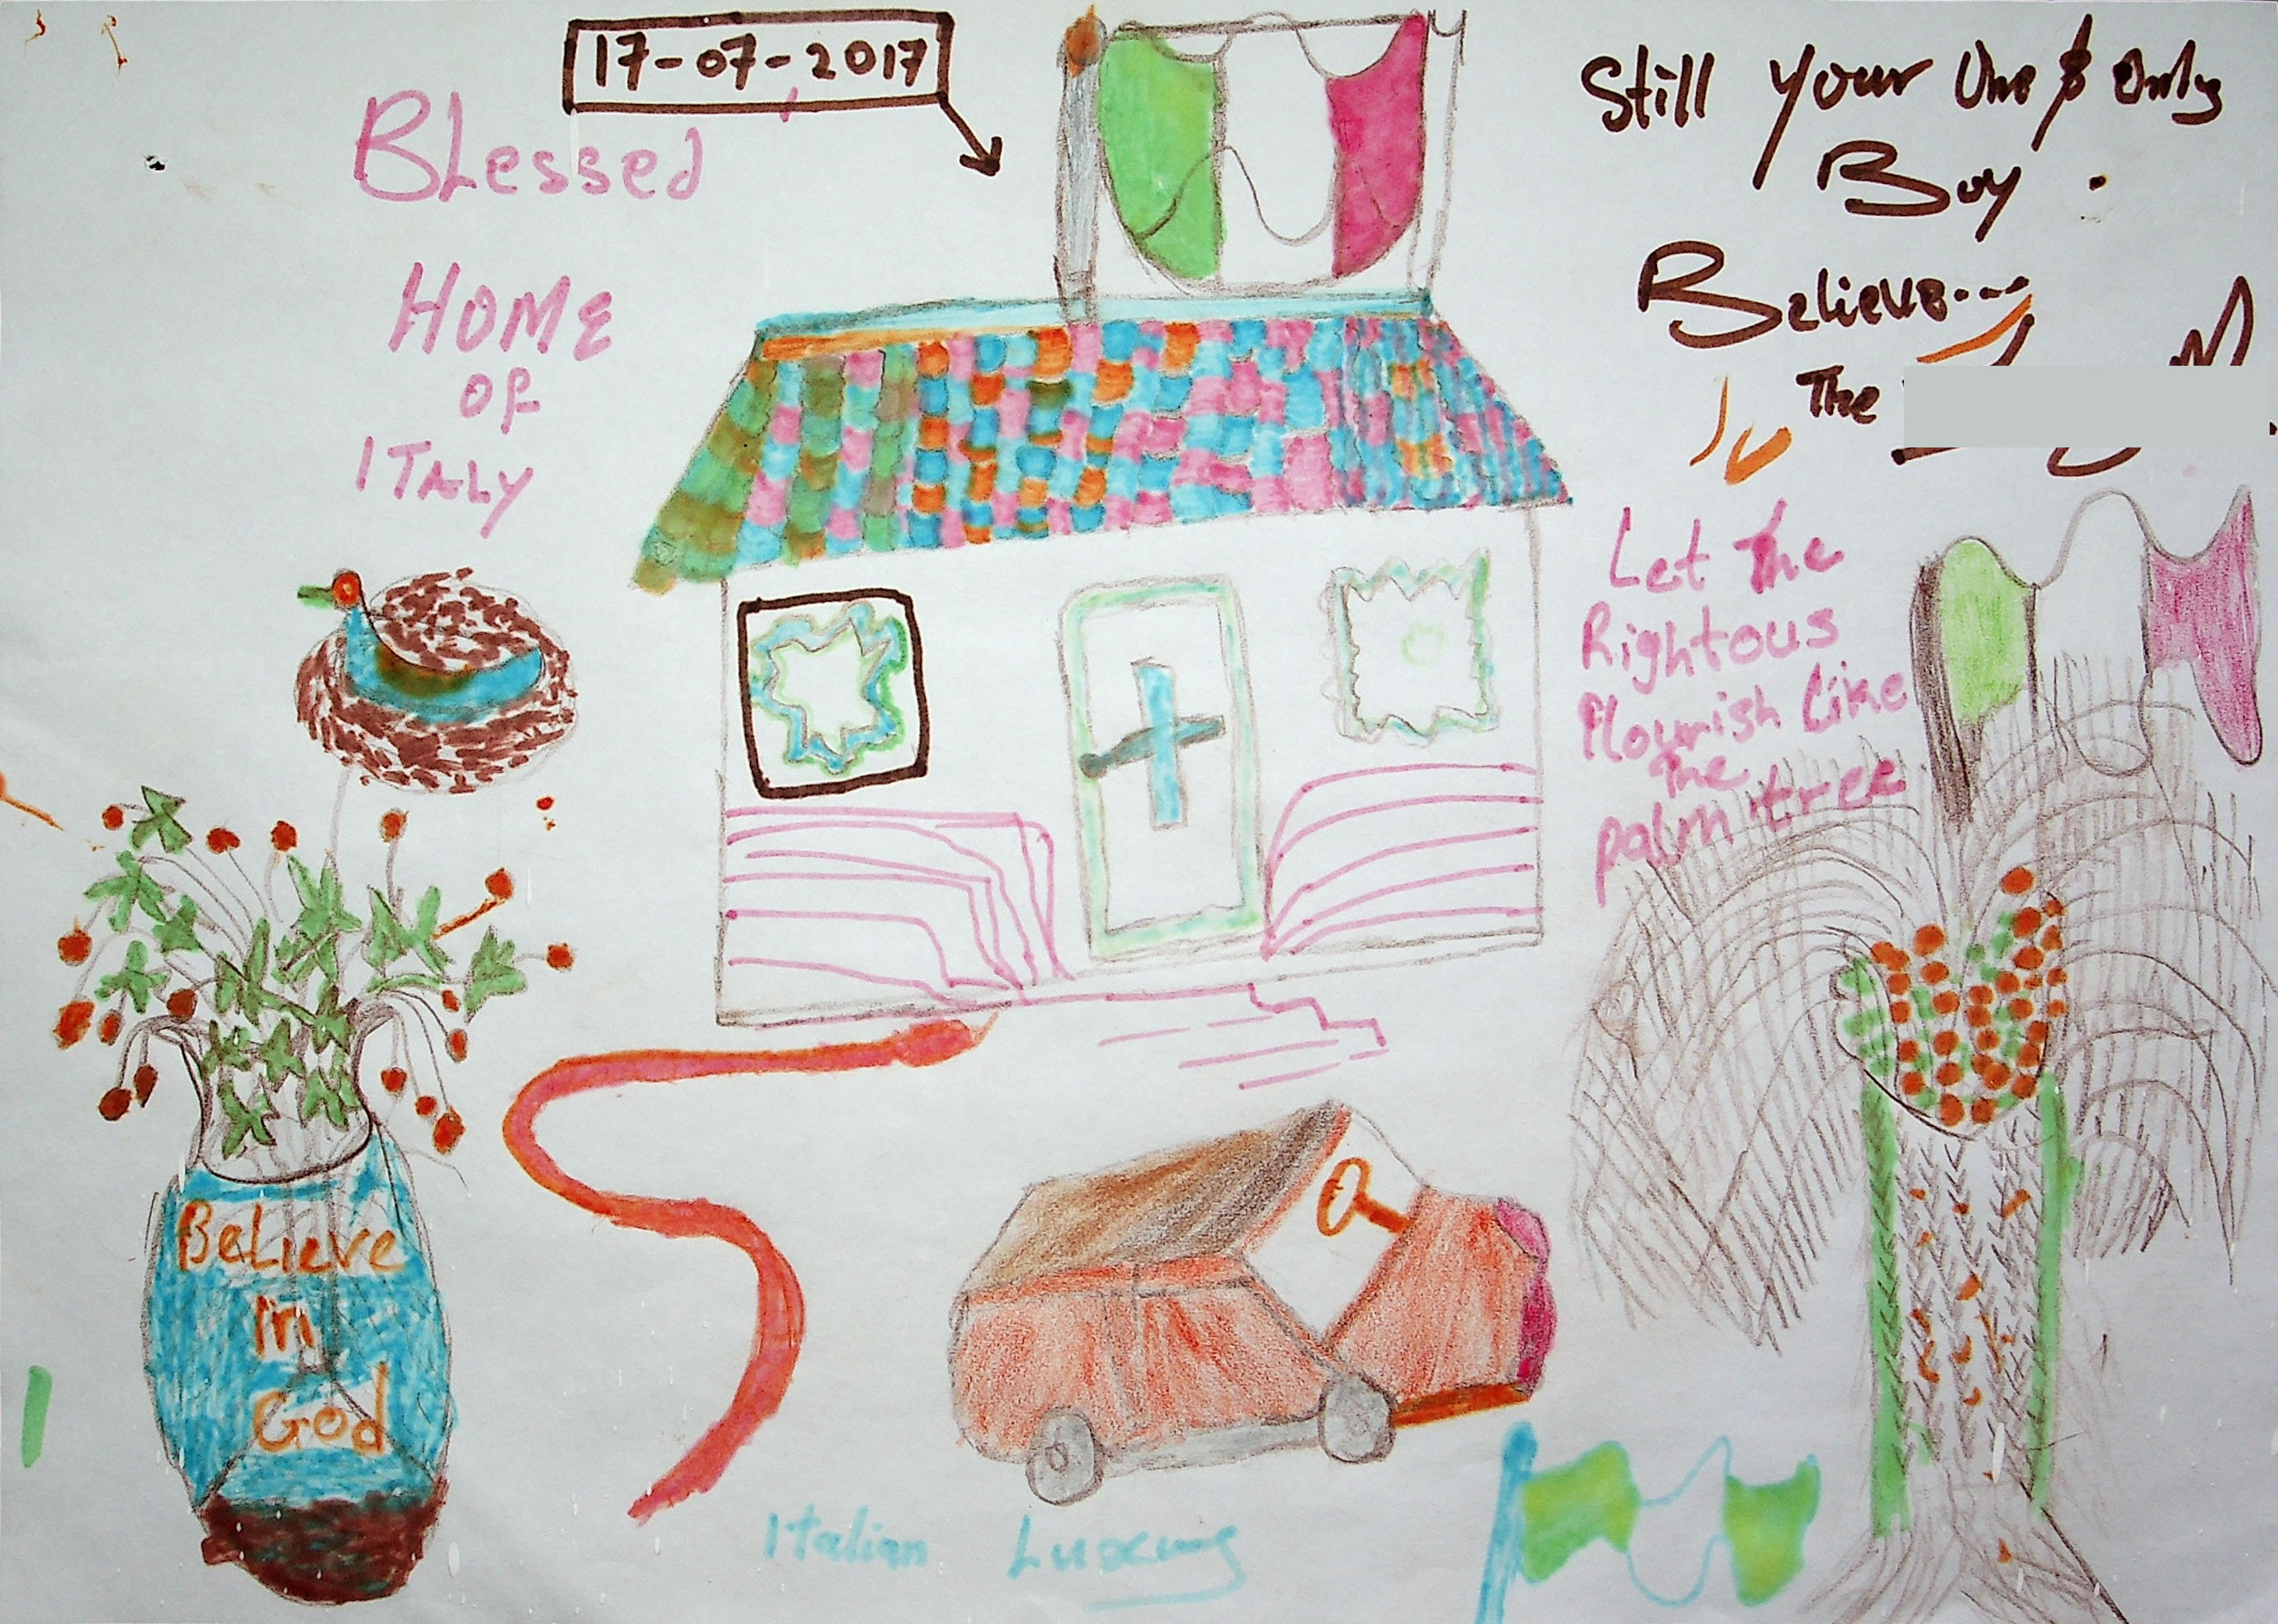 17-07-2017
Blessed
HOME
OF
ITALY
Still your One & Only
Boy.
Believe...
The
Let The
Rightous
flourish like
the
palm tree
Believe
in
God
Italian Luxury